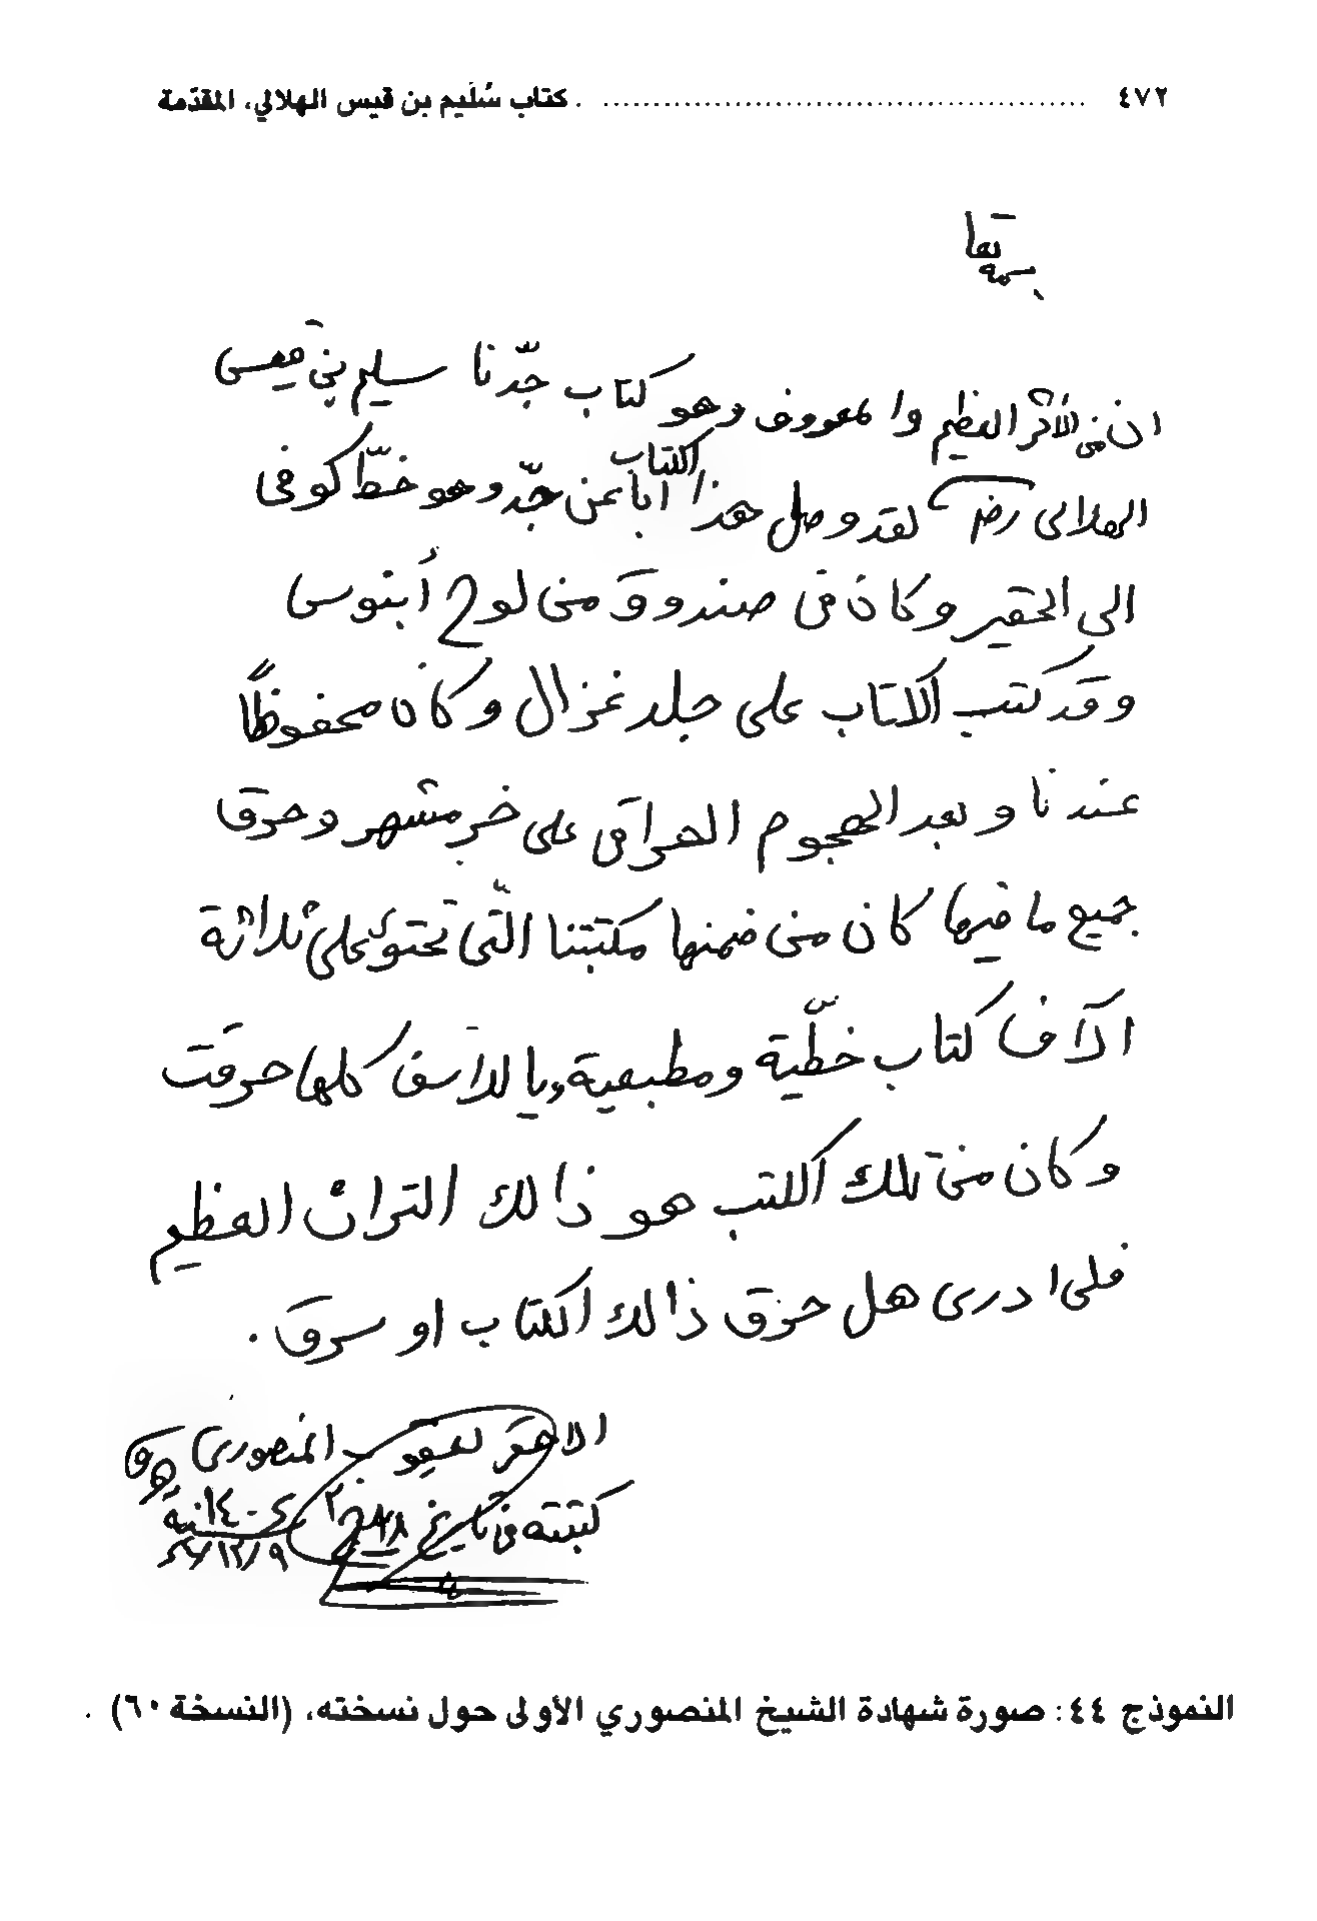 ٤٧٢ ........ كتاب سُلَيم بن قيس الهلالي، المقدّمة
بسمه تعا
ان من الأثر العظيم والمعروف وهو كتاب جدّنا سليم بن قيس
الهلالى رض لقد وصل هذا الكتاب اباً عن جدّ وهو خطّ كوفى
الى الحقير وكان فى صندوق من لوح أبنوس
وقد كتب الكتاب على جلد غزال وكان محفوظاً
عندنا وبعد الهجوم العراقى على خرمشهر وحرق
جميع ما فيها كان من ضمنها مكتبتنا الّتى تحتوى على ثلاثة
الآف كتاب خطّية ومطبعية ويا للأسف كلها حرقت
وكان من تلك الكتب هو ذالك التراث العظيم
فلا ادرى هل حرق ذالك الكتاب او سرق .
الاحقر يعقوب المنصورى
كتبته فى تاريخ ٢٨ ١٤٠٤
٩/١٢/
النموذج ٤٤: صورة شهادة الشيخ المنصوري الأولى حول نسخته، (النسخة ٦٠) .